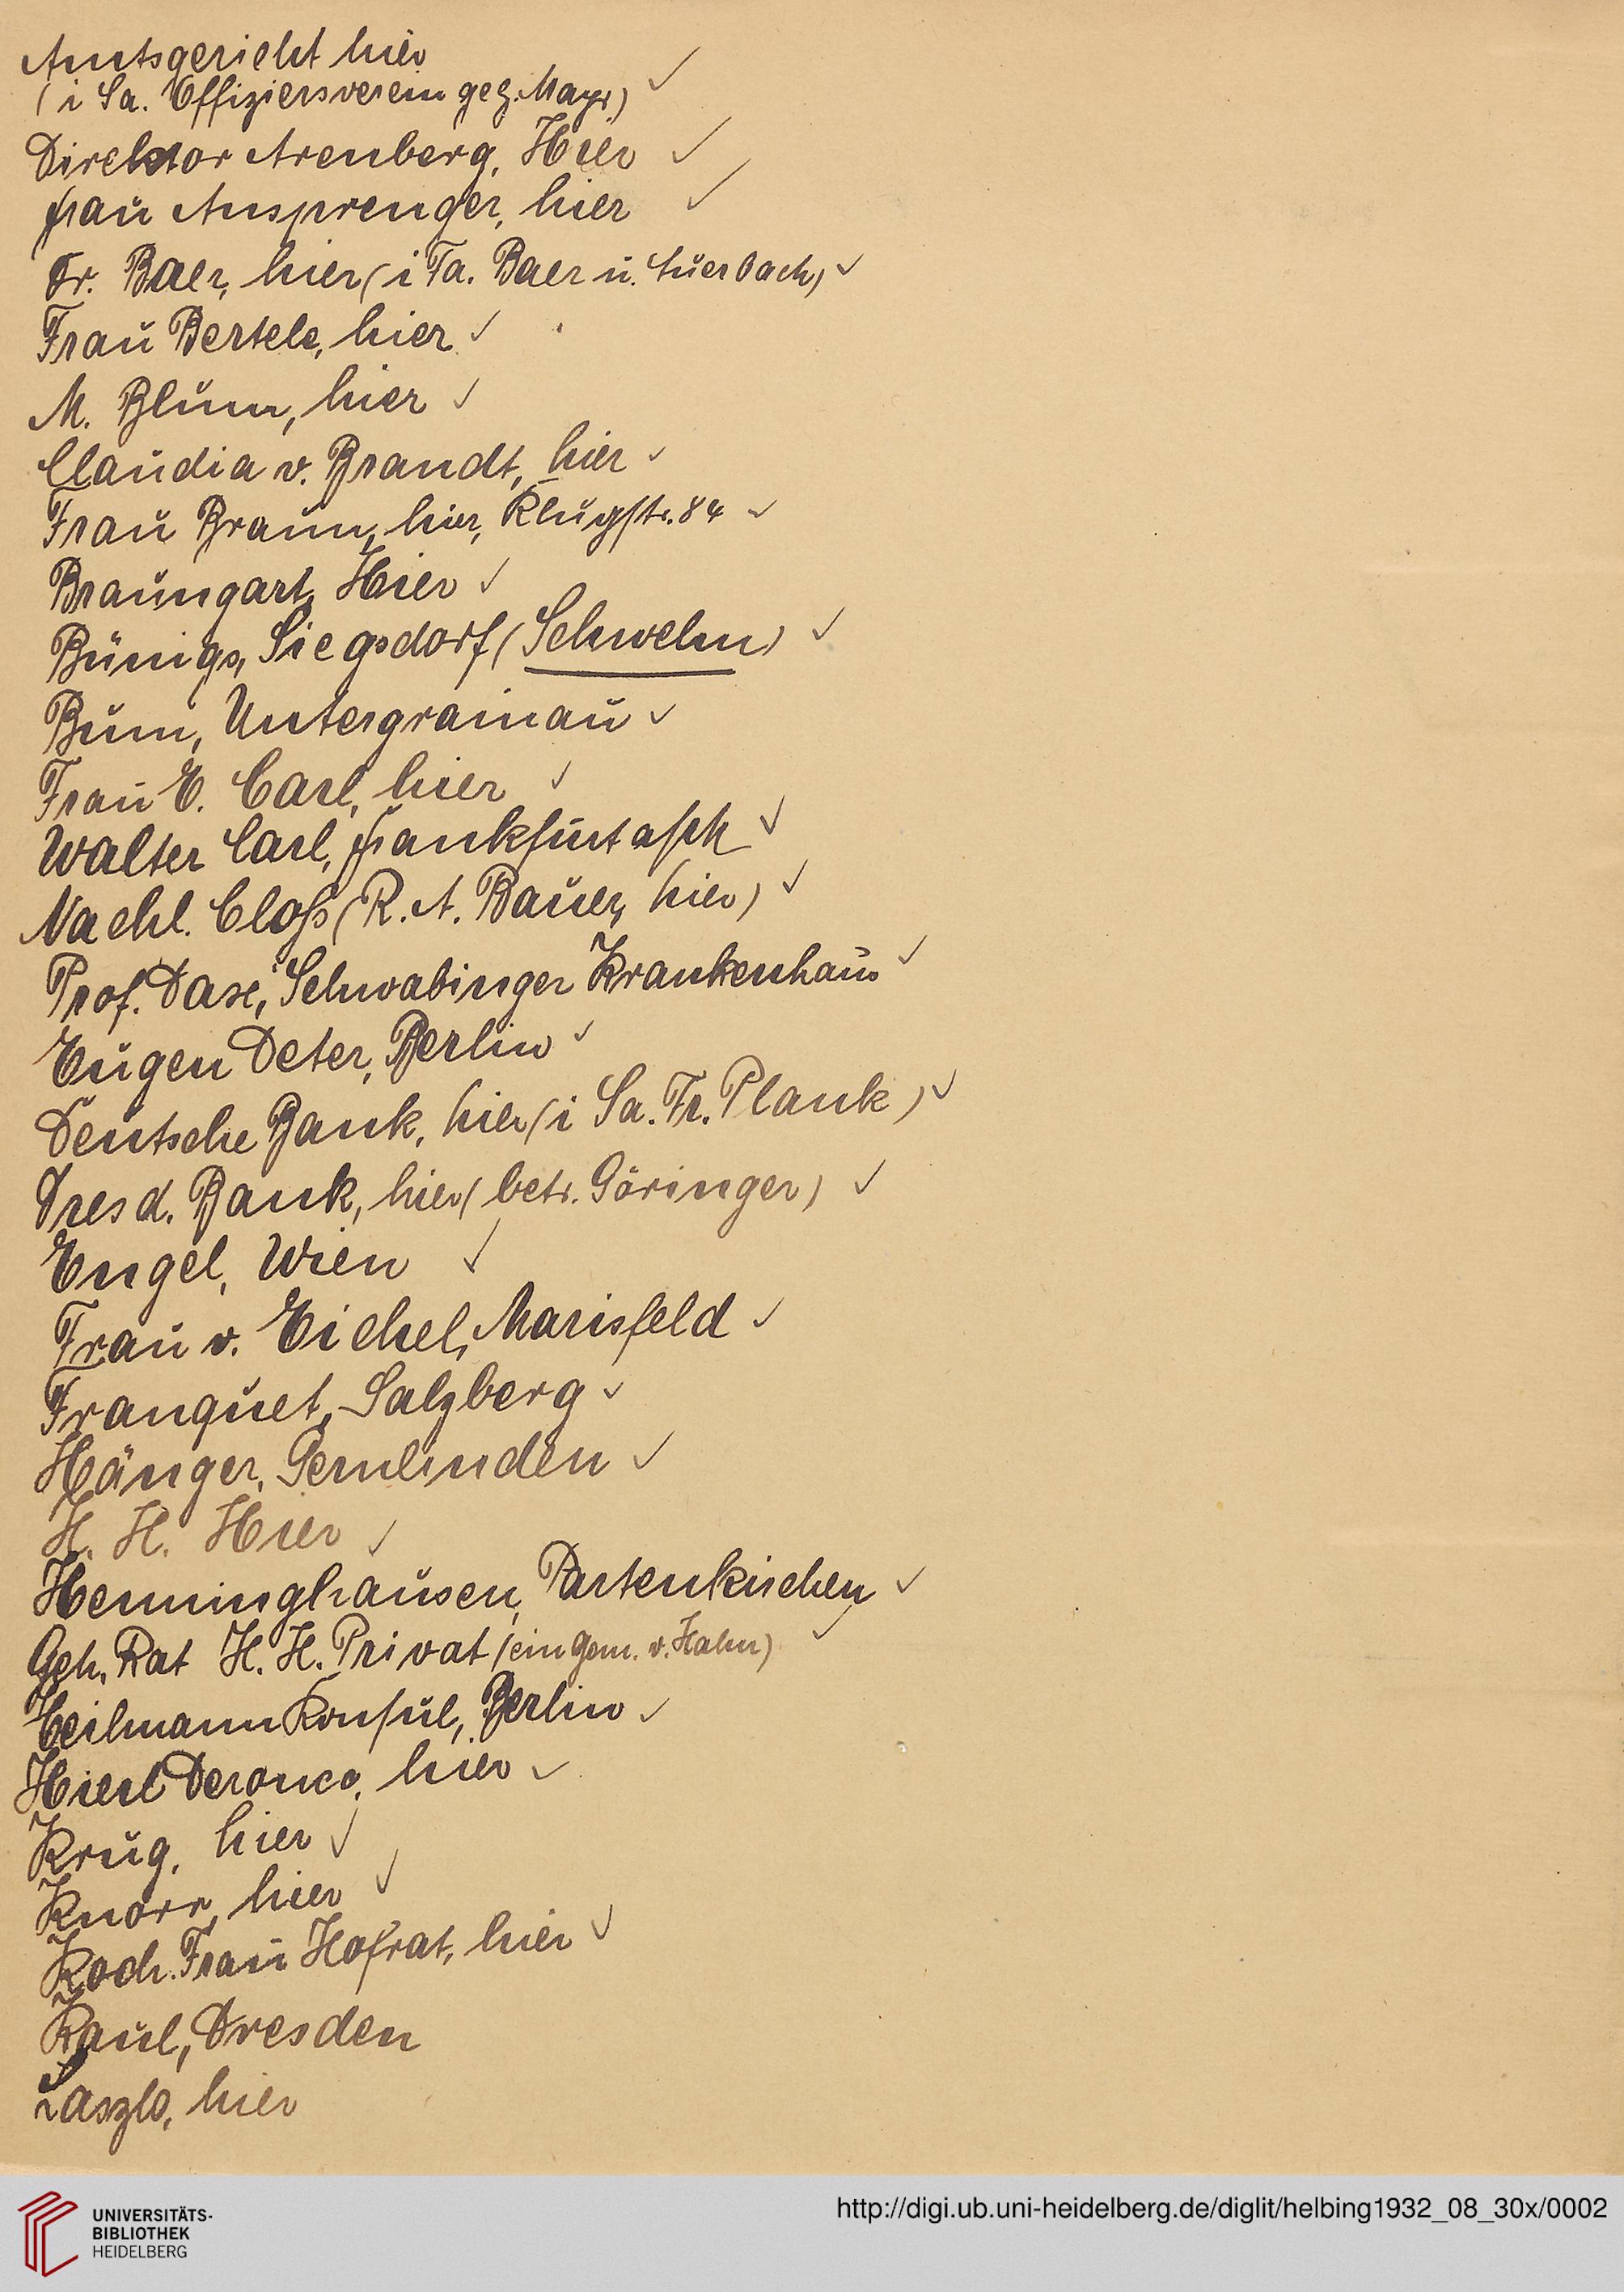 Amtsgericht hier
(i Sa. Offiziersverein geg. Mayr)
Direktor Arenberg, Hier
Frau Ansprenger, hier
Dr. Baer, hier (i Fa. Baer u. Auerbach)
Frau Bertele, hier
M. Blum, hier
Claudia v. Brandt, hier
Frau Braun, hier, Klugstr. 84
Braungart, Hier
Bünigs, Siegsdorf (Schwelm)
Bum, Untergrainau
Frau E. Carl, hier
Walter Carl, Frankfurt
Nachl. Closs (R. A. Bauer, hier)
Prof. Dax, Schwabinger Krankenhaus
Eugen Deter, Berlin
Deutsche Bank, hier (i Sa. Fr. Plank)
Dresd. Bank, hier (betr. Göringer)
Engel, Wien
Frau v. Eichel, Marisfeld
Franquet, Salzberg
Hänger, Gernlinden
H. H. Hier
Henninghausen, Partenkirchen
Geh. Rat H. H. Privat (ein Gem. v. Hahn)
Heilmann Konsul, Berlin
Hierl Deronco, hier
Krug, hier
Knorr, hier
Koch. Frau Hofrat, hier
Kaul, Dresden
Laszlo, hier
UNIVERSITÄTS-
BIBLIOTHEK
HEIDELBERG
http://digi.ub.uni-heidelberg.de/diglit/helbing1932_08_30x/0002